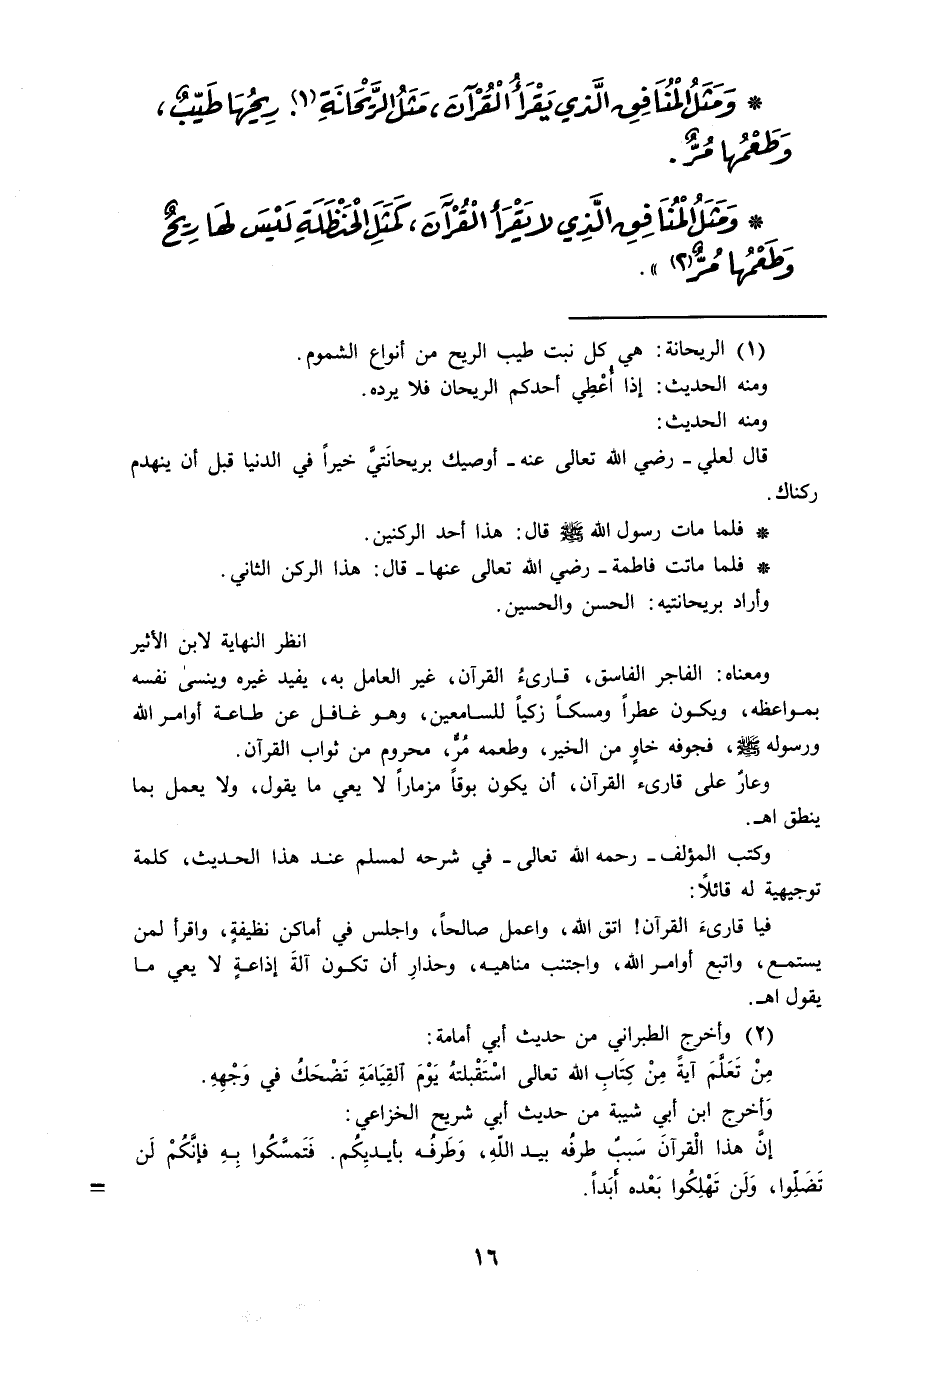 * وَمَثَلُ الْمُنَافِقِ الَّذي يَقْرَأُ الْقُرْآنَ، مَثَلُ الرَّيْحَانَةِ (١). رِيحُهَا طَيِّبٌ،
وَطَعْمُها مُرٌّ.
* وَمَثَلُ الْمُنَافِقِ الَّذِي لا يَقْرَأُ الْقُرْآنَ، كَمَثَلِ الْحَنْظَلَةِ لَيْسَ لَهَا رِيحٌ
وَطَعْمُها مُرٌّ (٢) ».
(١) الريحانة: هي كل نبت طيب الريح من أنواع الشموم.
ومنه الحديث: إذا أُعْطِي أحدكم الريحان فلا يرده.
ومنه الحديث:
قال لعلي ـ رضي الله تعالى عنه ـ أوصيك بريحانَتيَّ خيراً في الدنيا قبل أن ينهدم
ركناك.
* فلما مات رسول الله ﷺ قال: هذا أحد الركنين.
* فلما ماتت فاطمة ـ رضي الله تعالى عنها ـ قال: هذا الركن الثاني.
وأراد بريحانتيه: الحسن والحسين.
انظر النهاية لابن الأثير
ومعناه: الفاجر الفاسق، قارىءُ القرآن، غير العامل به، يفيد غيره وينسىٰ نفسه
بمواعظه، ويكون عطراً ومسكاً زكياً للسامعين، وهو غافل عن طاعة أوامر الله
ورسوله ﷺ، فجوفه خاوٍ من الخير، وطعمه مُرٌّ، محروم من ثواب القرآن.
وعارٌ على قارىء القرآن، أن يكون بوقاً مزماراً لا يعي ما يقول، ولا يعمل بما
ينطق اهـ.
وكتب المؤلف ـ رحمه الله تعالى ـ في شرحه لمسلم عند هذا الحديث، كلمة
توجيهية له قائلاً:
فيا قارىءَ القرآن! اتق الله، واعمل صالحاً، واجلس في أماكن نظيفةٍ، واقرأ لمن
يستمع، واتبع أوامر الله، واجتنب مناهيه، وحذارِ أن تكون آلةَ إذاعةٍ لا يعي ما
يقول اهـ.
(٢) وأخرج الطبراني من حديث أبي أمامة:
مِنْ تَعَلَّمَ آيةً مِنْ كِتَابِ الله تعالى اسْتَقْبلتهُ يَوْمَ ٱلقِيَامَةِ تَضْحَكُ في وَجْهِهِ.
وَأخرج ابن أبي شيبة من حديث أبي شريح الخزاعي:
إنَّ هذا الْقرآنَ سَببٌ طرفُه بيد اللّهِ، وَطَرفُه بأيديِكُم. فَتَمسَّكُوا بِهِ فإنَّكُمْ لَن
تَضَلّوا، وَلَن تَهْلِكُوا بَعْده أَبَداً.
=
١٦